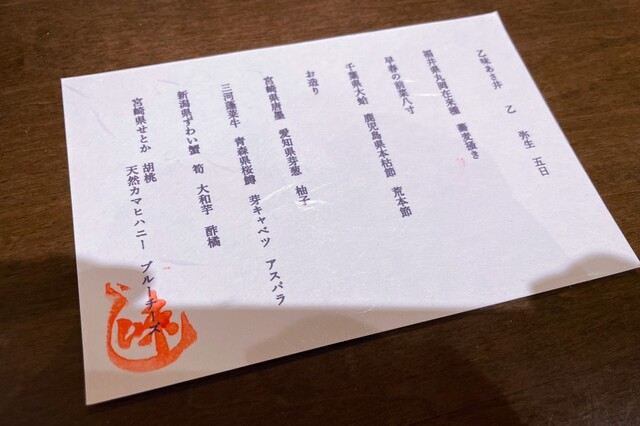 乙味あさ井　乙　弥生　五日
福井県丸岡在来種　蕎麦掻き
早春の前菜八寸
千葉県大蛤　鹿児島県本枯節　荒本節
お造り
宮崎県唐墨　愛知県芽葱　柚子
三河蓬莱牛　青森県桜鱒　芽キャベツ　アスパラ
新潟県ずわい蟹　筍　大和芋　酢橘
宮崎県せとか　胡桃
天然カマヒハニー　ブルーチーズ
味